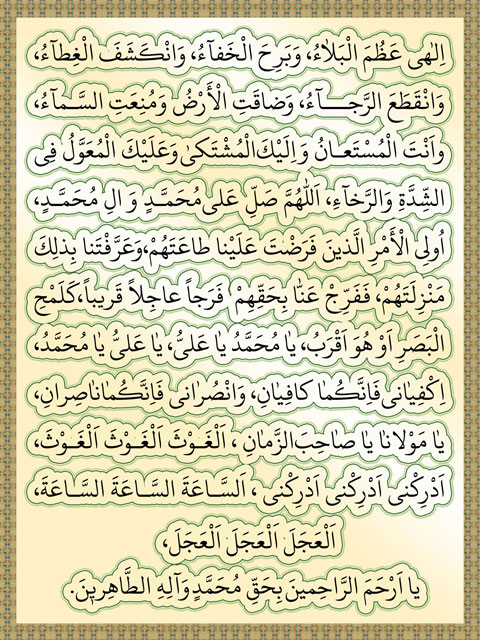 اِلٰهى عَظُمَ الْبَلاٰءُ، وَبَرِحَ الْخَفآءُ، وَانْكَشَفَ الْغِطآءُ،
وَانْقَطَعَ الرَّجــآءُ، وَضاقَتِ الْأَرْضُ وَمُنِعَتِ السَّمآءُ،
وَاَنْتَ الْمُسْتَعـانُ وَاِلَيْكَ الْمُشْتَكىٰ وَعَلَيْكَ الْمُعَوَّلُ فِى
الشِّدَّةِ وَالرَّخآءِ، اَللّٰهُمَّ صَلِّ عَلىٰ مُحَمَّـدٍ وَ الِ مُحَمَّـدٍ،
اُولِى الْأَمْرِ الَّذينَ فَرَضْتَ عَلَيْنا طاعَتَهُمْ،وَعَرَّفْتَنا بِذلِكَ
مَنْزِلَتَهُمْ، فَفَرِّجْ عَنّا بِحَقِّهِمْ فَرَجاً عاجِلاً قَريباً،كَلَمْحِ
الْبَصَرِ اَوْ هُوَ اَقْرَبُ، يا مُحَمَّدُ يا عَلىُّ، يا عَلىُّ يا مُحَمَّدُ،
اِكْفِيانى فَاِنَّكُما كافِيانِ، وَانْصُرانى فَاِنَّكُماناصِرانِ،
يا مَوْلانا يا صاحِبَ الزَّمانِ ، اَلْغَـوْثَ اَلْغَـوْثَ اَلْغَوْثَ،
اَدْرِكْنى اَدْرِكْنى اَدْرِكْنى ، اَلسَّـاعَةَ السَّـاعَةَ السَّـاعَةَ،
اَلْعَجَلَ اَلْعَجَلَ اَلْعَجَلَ،
يا اَرْحَمَ الرَّاحِمينَ بِحَقِّ مُحَمَّدٍ وَآلِهِ الطَّاهِرِينَ.